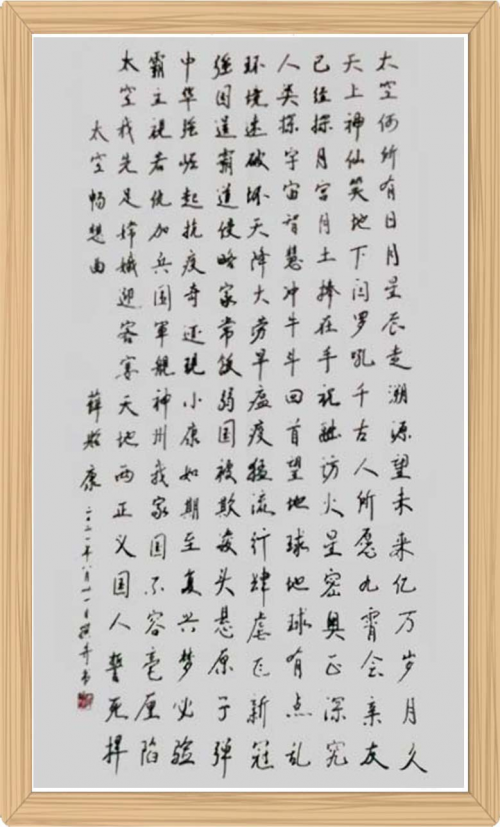 太空何所有日月星辰走溯源望未来亿万岁月久
天上神仙笑地下闫罗吼千古人所愿九霄会亲友
已经探月宫月土捧在手祝融访火星密奥正深究
人类探宇宙智慧冲牛斗回首望地球地球有点乱
环境遭破坏天降大劳旱瘟疫猛流行肆虐新冠
强国道霸道侵略家常饭弱国被欺凌头悬原子弹
中华强崛起抗疫奇迹现小康如期至复兴梦必验
霸主视者仇加兵围軍舰神州我家国不容毫厘陷
太空我先足嫦娥迎客宴天地两正义国人誓死捍
太空畅想曲 薛康 二〇二一年八月廿一日撰并书